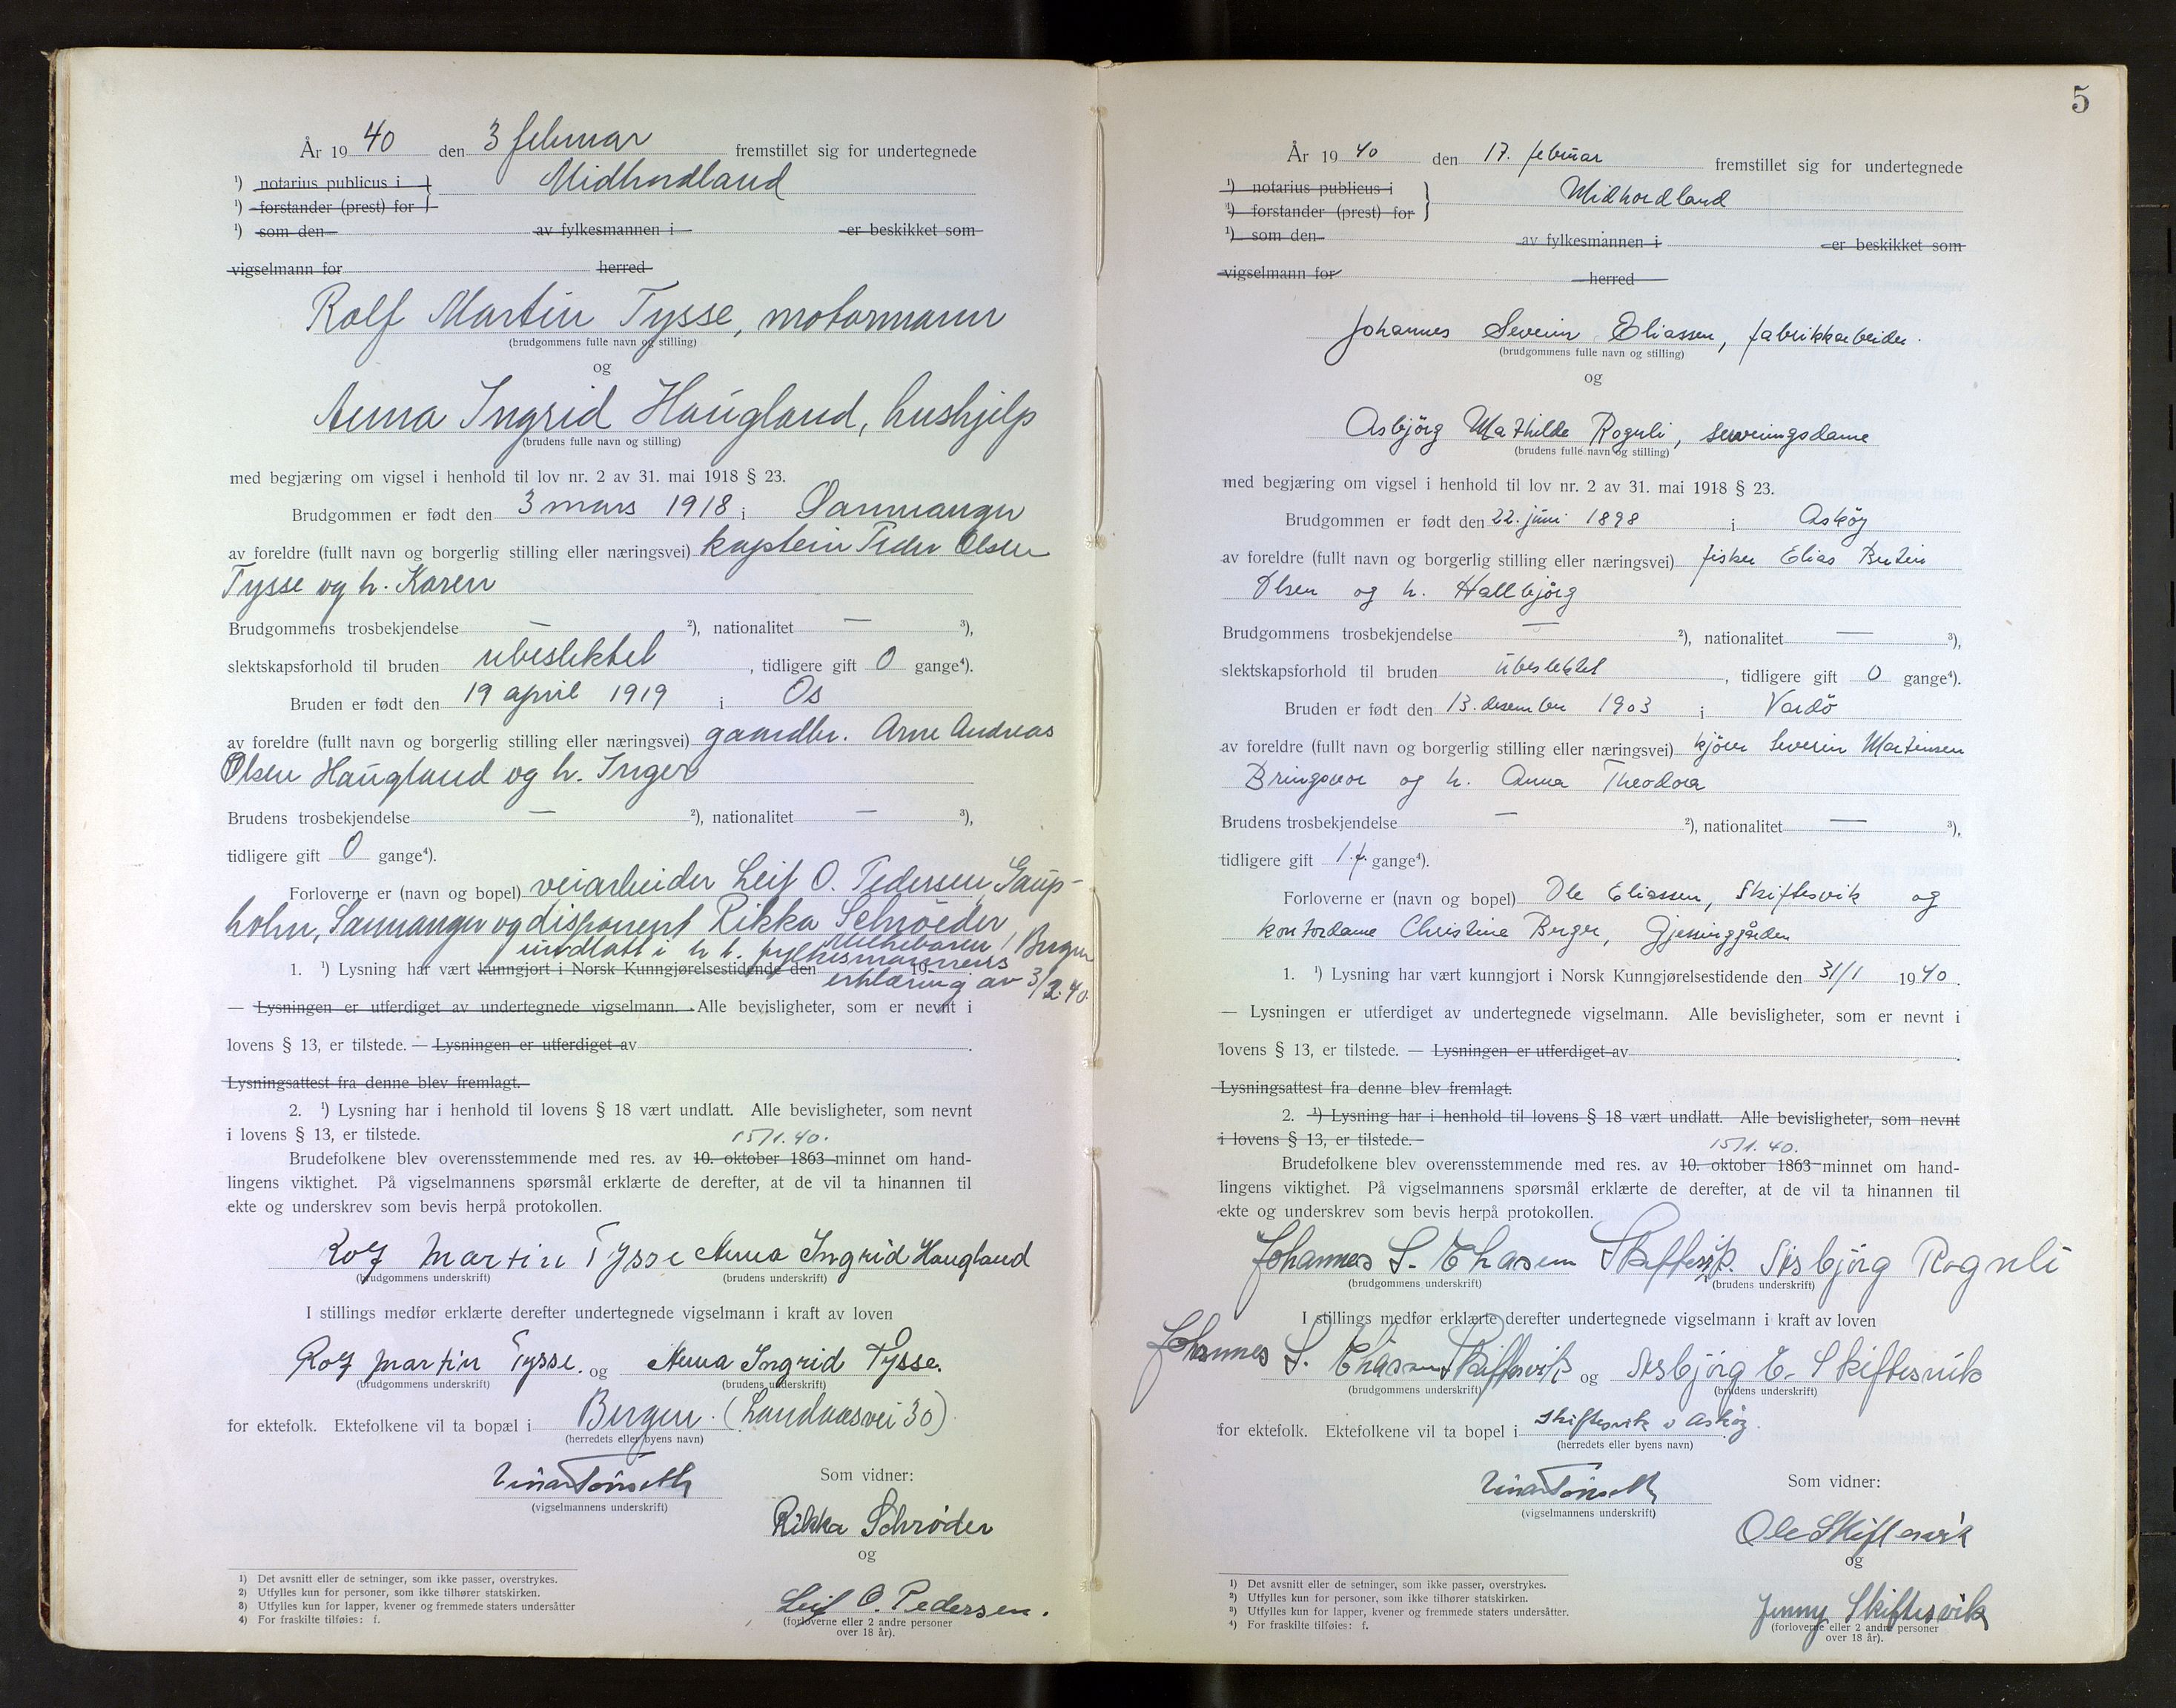 År 19 40 den 3 februar fremstillet sig for undertegnede
¹) notarius publicus i } Midhordland
¹) forstander (prest) for
¹) som den av fylkesmannen i er beskikket som
vigselmann for herred
Rolf Martin Tysse, motormann
(brudgommens fulle navn og stilling)
og
Anna Ingrid Haugland, hushjelp
(brudens fulle navn og stilling)
med begjæring om vigsel i henhold til lov nr. 2 av 31. mai 1918 § 23.
Brudgommen er født den 3 mars 1918 i Samnanger
av foreldre (fullt navn og borgerlig stilling eller næringsvei) kaptein Peder Olsen
Tysse og h. Karen
Brudgommens trosbekjendelse — ²), nationalitet — ³),
slektskapsforhold til bruden ubeslektet, tidligere gift 0 gange⁴).
Bruden er født den 19 april 1919 i Os
av foreldre (fullt navn og borgerlig stilling eller næringsvei) gaardbr. Arne Andreas
Olsen Haugland og h. Inger
Brudens trosbekjendelse — ²), nationalitet — ³),
tidligere gift 0 gange⁴).
Forloverne er (navn og bopel) veiarbeider Leif O. Pedersen, Gaup-
holm, Samnanger og disponent Rikka Schrøder,
Bergen
undlatt i h. t. fylkesmannens
1. ¹) Lysning har vært kunngjort i Norsk Kunngjørelsestidende den 19
erklæring av 3/2.40.
— Lysningen er utferdiget av undertegnede vigselmann. Alle bevisligheter, som er nevnt i
lovens § 13, er tilstede. — Lysningen er utferdiget av .
Lysningsattest fra denne blev fremlagt.
2. ¹) Lysning har i henhold til lovens § 18 vært undlatt. Alle bevisligheter, som nevnt
i lovens § 13, er tilstede.
15/1.40.
Brudefolkene blev overensstemmende med res. av 10. oktober 1863 minnet om hand-
lingens viktighet. På vigselmannens spørsmål erklærte de derefter, at de vil ta hinannen til
ekte og underskrev som bevis herpå protokollen.
Rolf Martin Tysse Anna Ingrid Haugland
(brudgommens underskrift) (brudens underskrift)
I stillings medfør erklærte derefter undertegnede vigselmann i kraft av loven
Rolf Martin Tysse. og Anna Ingrid Tysse.
(brudgommens underskrift) (brudens underskrift)
for ektefolk. Ektefolkene vil ta bopæl i Bergen. (Landaasvei 30)
(herredets eller byens navn)
Einar Tönseth
(vigselmannens underskrift)
Som vidner:
Rikka Schrøder
og
Leif O. Pedersen.
(forloverne eller 2 andre personer
over 18 år).
1) Det avsnitt eller de setninger, som ikke passer, overstrykes.
2) Utfylles kun for personer, som ikke tilhører statskirken.
3) Utfylles kun for lapper, kvener og fremmede staters undersåtter
4) For fraskilte tilføies: f.
5
År 19 40 den 17. februar fremstillet sig for undertegnede
¹) notarius publicus i } Midhordland
¹) forstander (prest) for
¹) som den av fylkesmannen i er beskikket som
vigselmann for herred
Johannes Severin Eliassen, fabrikkarbeider.
(brudgommens fulle navn og stilling)
og
Asbjörg Mathilde Roguli, serveringsdame
(brudens fulle navn og stilling)
med begjæring om vigsel i henhold til lov nr. 2 av 31. mai 1918 § 23.
Brudgommen er født den 22. juni 1898 i Asköy
av foreldre (fullt navn og borgerlig stilling eller næringsvei) fisker Elias Bertin
Olsen og h. Hallbjörg
Brudgommens trosbekjendelse — ²), nationalitet — ³),
slektskapsforhold til bruden ubeslektet, tidligere gift 0 gange⁴).
Bruden er født den 13. desember 1903 i Vardö
av foreldre (fullt navn og borgerlig stilling eller næringsvei) kjörer Severin Martinsen
Bringsvor og h. Anna Theodora
Brudens trosbekjendelse — ²), nationalitet — ³),
tidligere gift 1.f. gange⁴).
Forloverne er (navn og bopel) Ole Eliassen, Skiftesvik og
kontordame Christine Berger, Gjessinggården
1. ¹) Lysning har vært kunngjort i Norsk Kunngjørelsestidende den 31/1 1940.
— Lysningen er utferdiget av undertegnede vigselmann. Alle bevisligheter, som er nevnt i
lovens § 13, er tilstede. — Lysningen er utferdiget av .
Lysningsattest fra denne blev fremlagt.
2. ¹) Lysning har i henhold til lovens § 18 vært undlatt. Alle bevisligheter, som nevnt
i lovens § 13, er tilstede.
15/1.40.
Brudefolkene blev overensstemmende med res. av 10. oktober 1863 minnet om hand-
lingens viktighet. På vigselmannens spørsmål erklærte de derefter, at de vil ta hinannen til
ekte og underskrev som bevis herpå protokollen.
Johannes S. Eliasen Skiftesvik. Asbjörg Roguli
(brudgommens underskrift) (brudens underskrift)
I stillings medfør erklærte derefter undertegnede vigselmann i kraft av loven
Johannes S. Eliasen Skiftesvik og Asbjörg E. Skiftesvik
(brudgommens underskrift) (brudens underskrift)
for ektefolk. Ektefolkene vil ta bopel i Skiftesvik v Asköy.
(herredets eller byens navn)
Einar Tönseth
(vigselmannens underskrift)
Som vidner:
Ole Skiftesvik
og
Jenny Skiftesvik
(forloverne eller 2 andre personer
over 18 år).
1) Det avsnitt eller de setninger, som ikke passer, overstrykes.
2) Utfylles kun for personer, som ikke tilhører statskirken.
3) Utfylles kun for lapper, kvener og fremmede staters undersåtter.
4) For fraskilte tilføies: f.